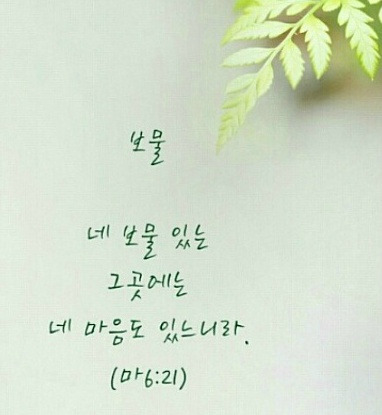 보물
네 보물 있는
그곳에는
네 마음도 있느니라.
(마6:21)